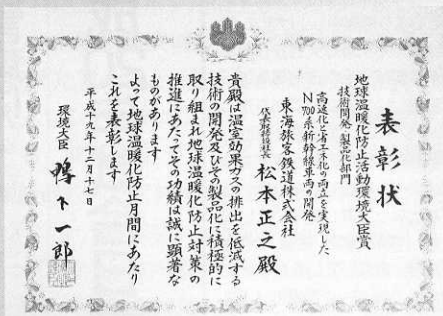 表彰状
地球温暖化防止活動環境大臣賞
技術開発・製品化部門
高速化と省エネ化の両立を実現した
N700系新幹線車両の開発
東海旅客鉄道株式会社
代表取締役社長 松本正之殿
貴殿は温室効果ガスの排出を低減する
技術の開発及びその製品化に積極的に
取り組まれ地球温暖化防止対策の
推進にあたってその功績は誠に顕著な
ものがあります
よって地球温暖化防止月間にあたり
これを表彰します
平成十九年十二月十七日
環境大臣 鴨下一郎